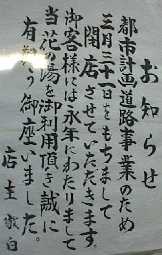 お知らせ
都市計画道路事業のため
三月三十一日をもちまして
閉店させていただきます。
御客様には永年にわたりまして
当花の湯を御利用頂き誠に
有難う御座いました。
店主敬白